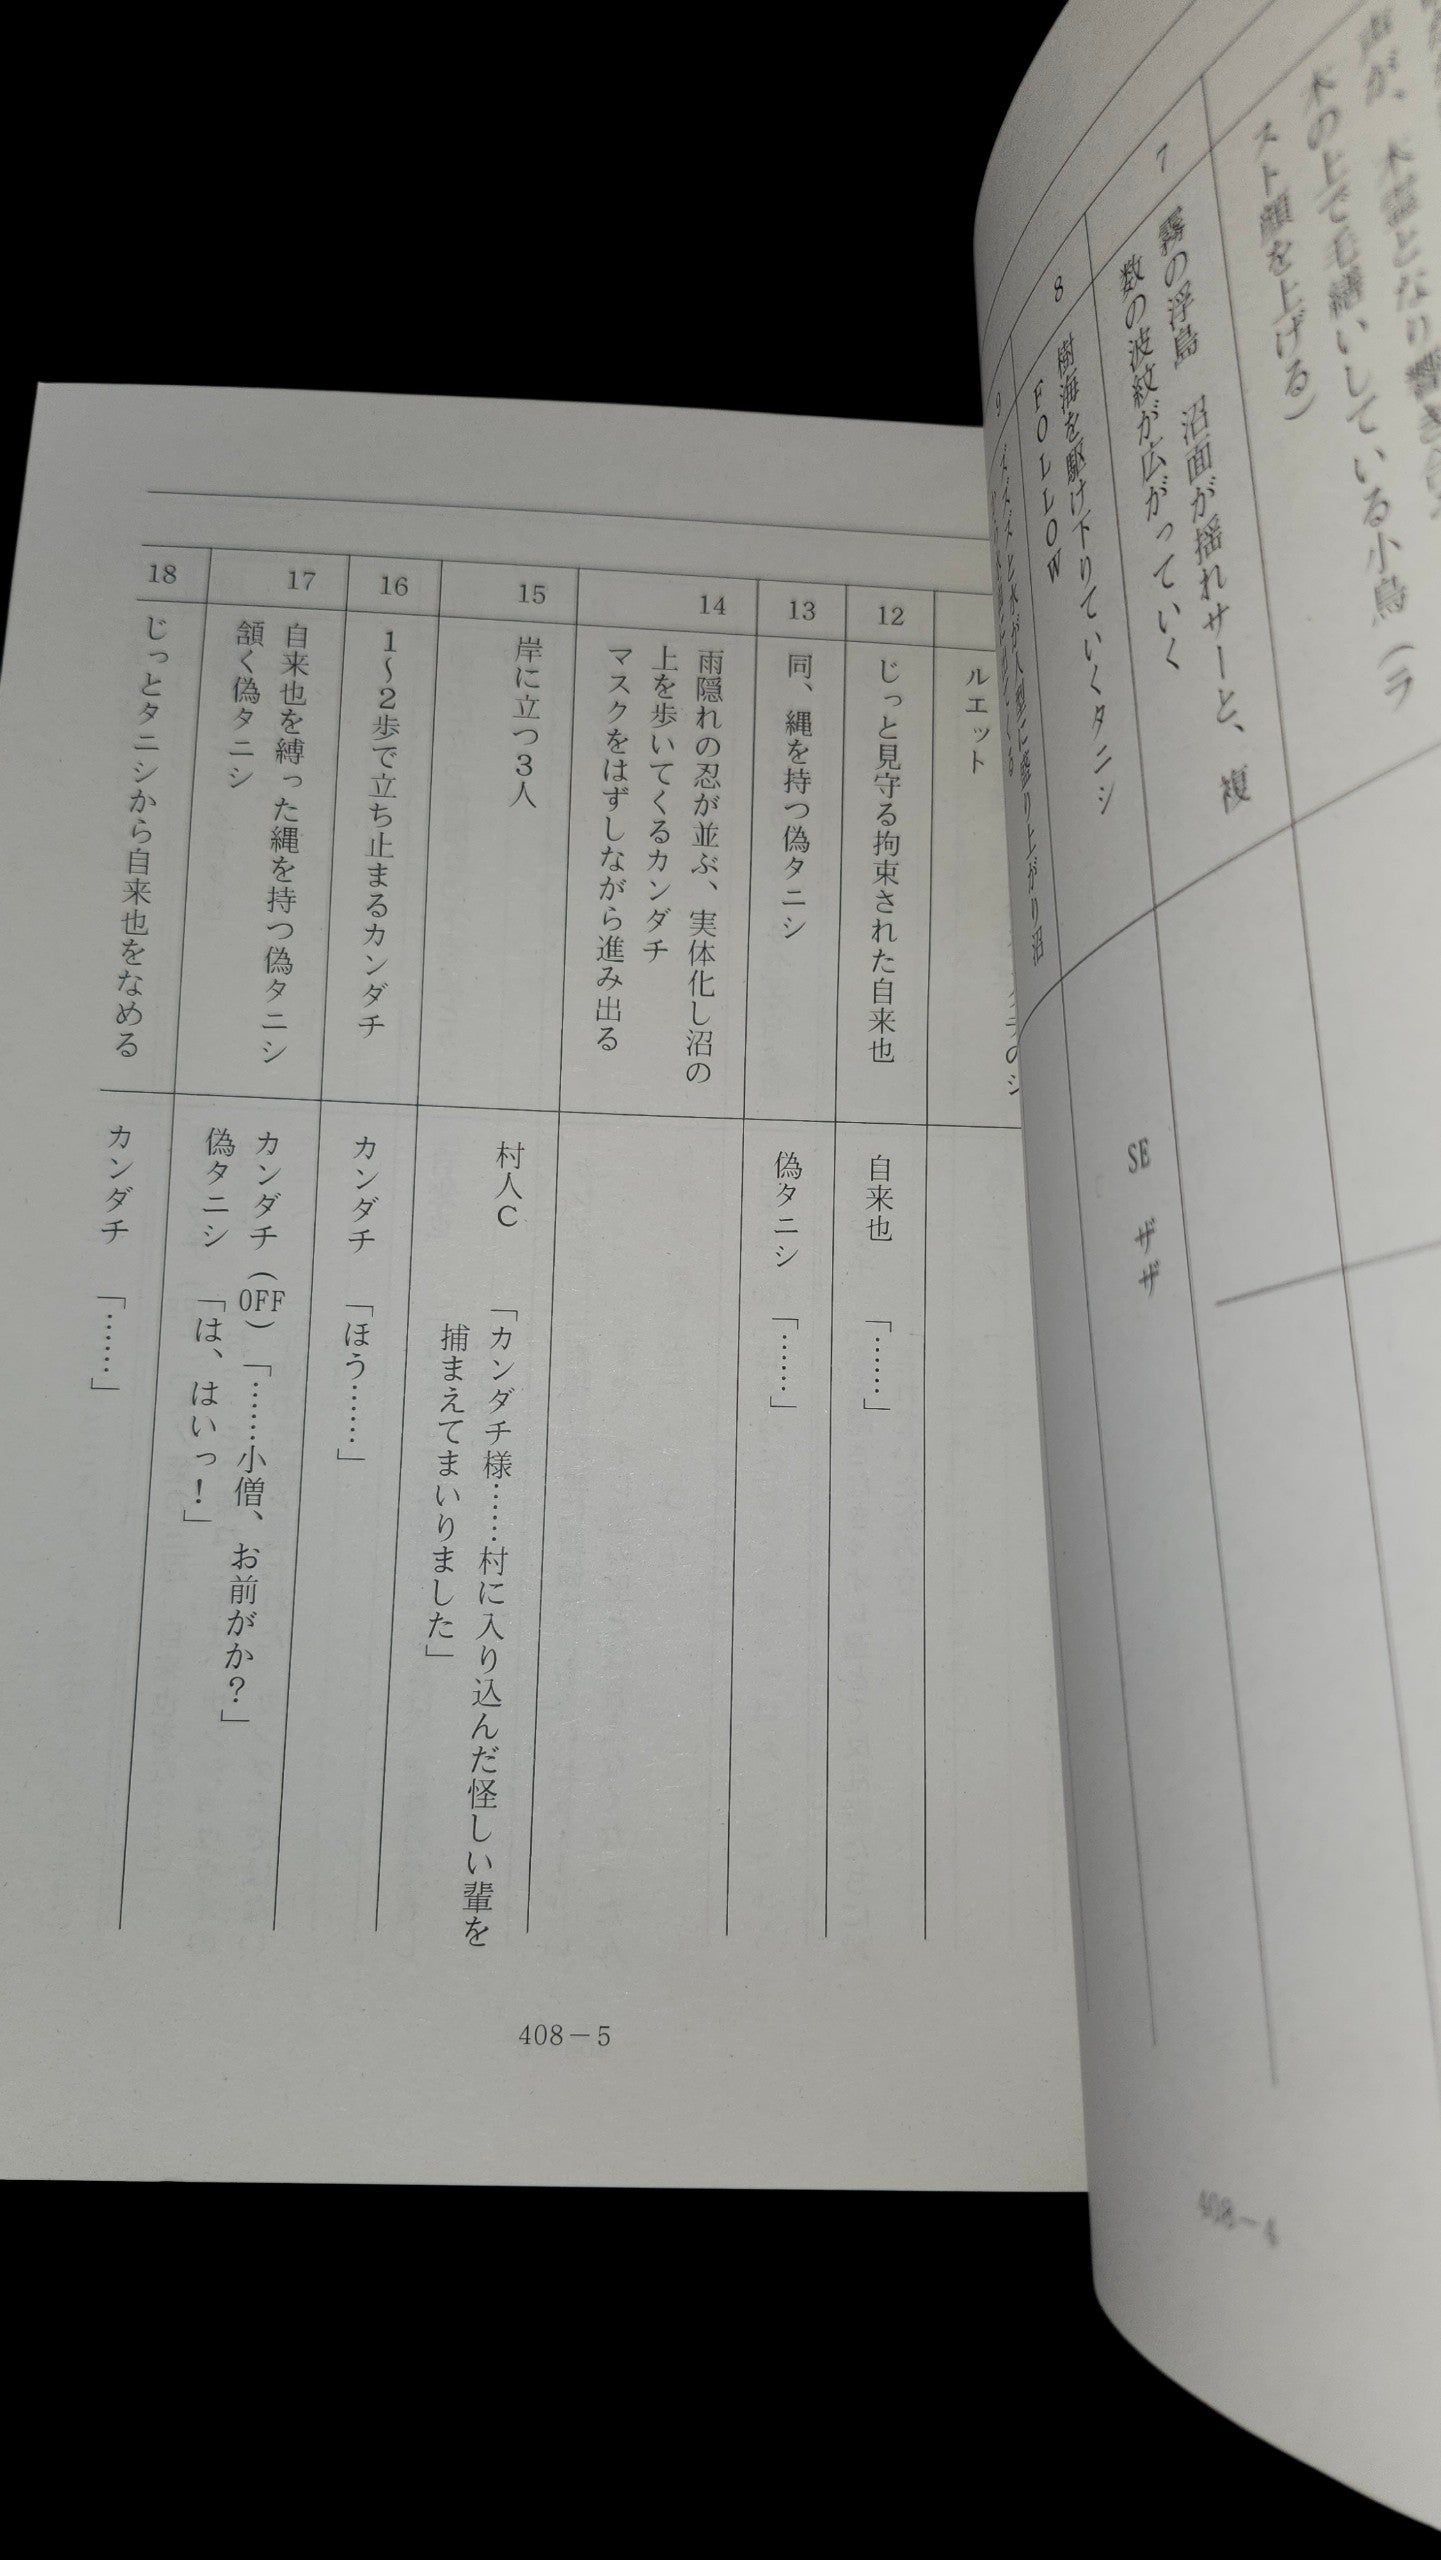 声が、木霊となり響き
木の上で毛繕いしている小鳥（ラ
スト顔を上げる）
7
霧の浮島　沼面が揺れサーと、複
数の波紋が広がっていく
8
樹海を駆け下りていくタニシ
FOLLOW
SE　ザザ
9
ズズズと水が人型に盛り上がり沼
408－4
ルエット
12
じっと見守る拘束された自来也
自来也　「……」
13
同、縄を持つ偽タニシ
偽タニシ　「……」
14
雨隠れの忍が並ぶ、実体化し沼の
上を歩いてくるカンダチ
マスクをはずしながら進み出る
15
岸に立つ3人
村人C　「カンダチ様……村に入り込んだ怪しい輩を
捕まえてまいりました」
16
1～2歩で立ち止まるカンダチ
カンダチ　「ほう……」
17
自来也を縛った縄を持つ偽タニシ
頷く偽タニシ
カンダチ（OFF）「……小僧、お前がか？」
偽タニシ　「は、はいっ！」
18
じっとタニシから自来也をなめる
カンダチ　「……」
408－5